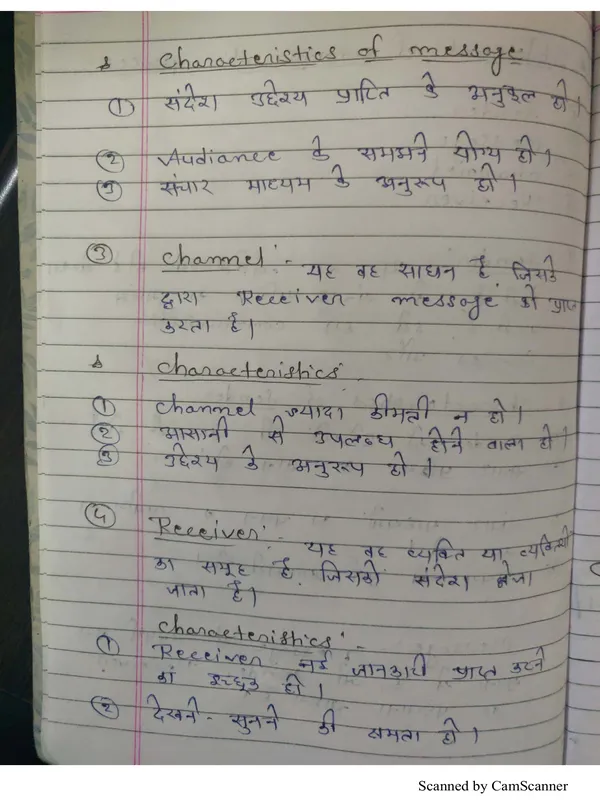 Characteristics of message
① संदेश उद्देश्य प्राप्ति के अनुकूल हो।
② Audiance के समझने योग्य हो।
③ संचार माध्यम के अनुरूप हो।
③ channel :- यह वह साधन है जिसके
द्वारा Receiver message को प्राप्त
करता है।
characteristics
① channel ज्यादा कीमती न हो।
② आसानी से उपलब्ध होने वाला हो।
③ उद्देश्य के अनुरूप हो।
④ Receiver :- यह वह व्यक्ति या व्यक्तियों
का समूह है जिसको संदेश भेजा
जाता है।
characteristics :-
① Receiver नई जानकारी प्राप्त करने
का इच्छुक हो।
② देखने - सुनने की क्षमता हो।
Scanned by CamScanner